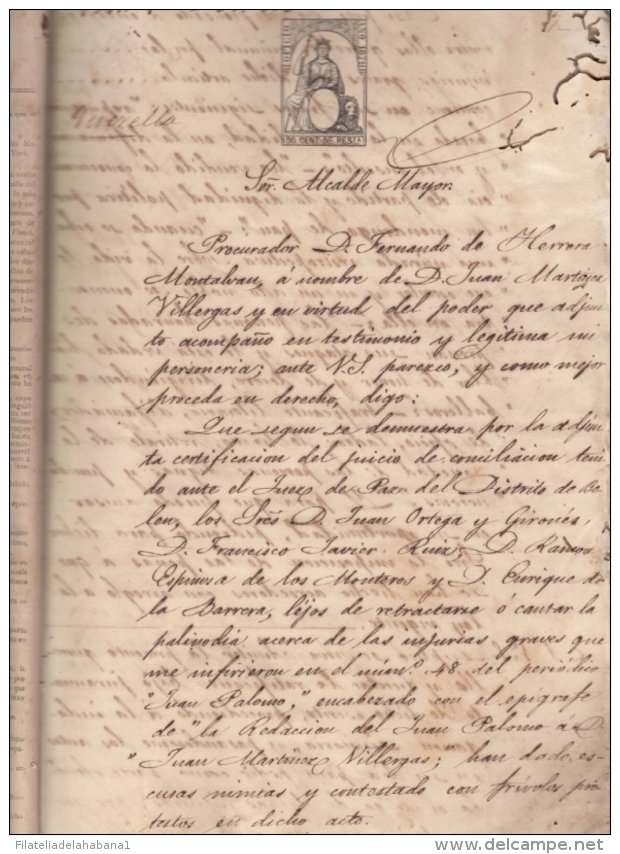 Querella
50 CENT. DE PESETA
Sor. Alcalde Mayor.
Procurador D. Fernando de Herrera
Montalvan, á nombre de D. Juan Martinez
Villergas y en virtud del poder que adjun
to acompaño en testimonio y legitima mi
personeria; ante V.S. parezco, y como mejor
proceda en derecho, digo:
Que segun se demuestra por la adjun
ta certificacion del juicio de conciliacion teni
do ante el Juez de Paz del Distrito de Be
len, los Sres D. Juan Ortega y Gironés,
D. Francisco Javier Ruiz, D. Ramon
Espinosa de los Monteros y D. Enrique de
la Barrera, léjos de retractarse ó cantar la
palinodia acerca de las injurias graves que
me infirieron en el núm.º 48 del periódico
"Juan Palomo," encabezado con el epígrafe
de "la Redaccion del Juan Palomo a D.
"Juan Martinez Villergas;" han dado es-
cusas nimias y contestado con frívolos pre
testos en dicho acto.
© Filateliadelahabana1
delcampe.net